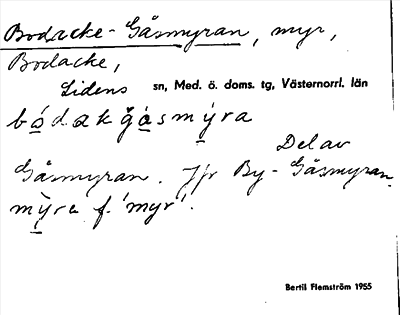 Bodacke-Gåsmyran, myr,
Bodacke,
Lidens sn, Med. ö. doms. tg, Västernorrl. län
bo̱dakgå̱smy̱ra
Del av
Gåsmyran. Jfr By-Gåsmyran.
my̱ra f. 'myr'.
Bertil Flemström 1955